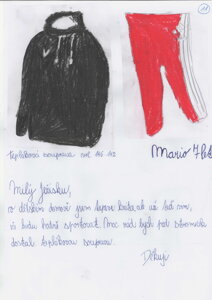 11
tepláková souprava vel. 146-152
Mario 7 let
Milý Ježíšku,
v dětském domově jsem teprve krátce ale už teď vím,
že budu hodně sportovat. Moc rád bych pod stromeček
dostal teplákovou soupravu.
Děkuji